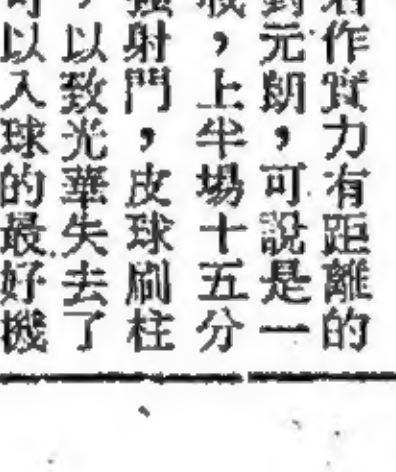 作實力有距離的
對元朗，可說是一
，上半場十五分
強射門，皮球刷柱
，以致光華失去了
可以入球的最好機